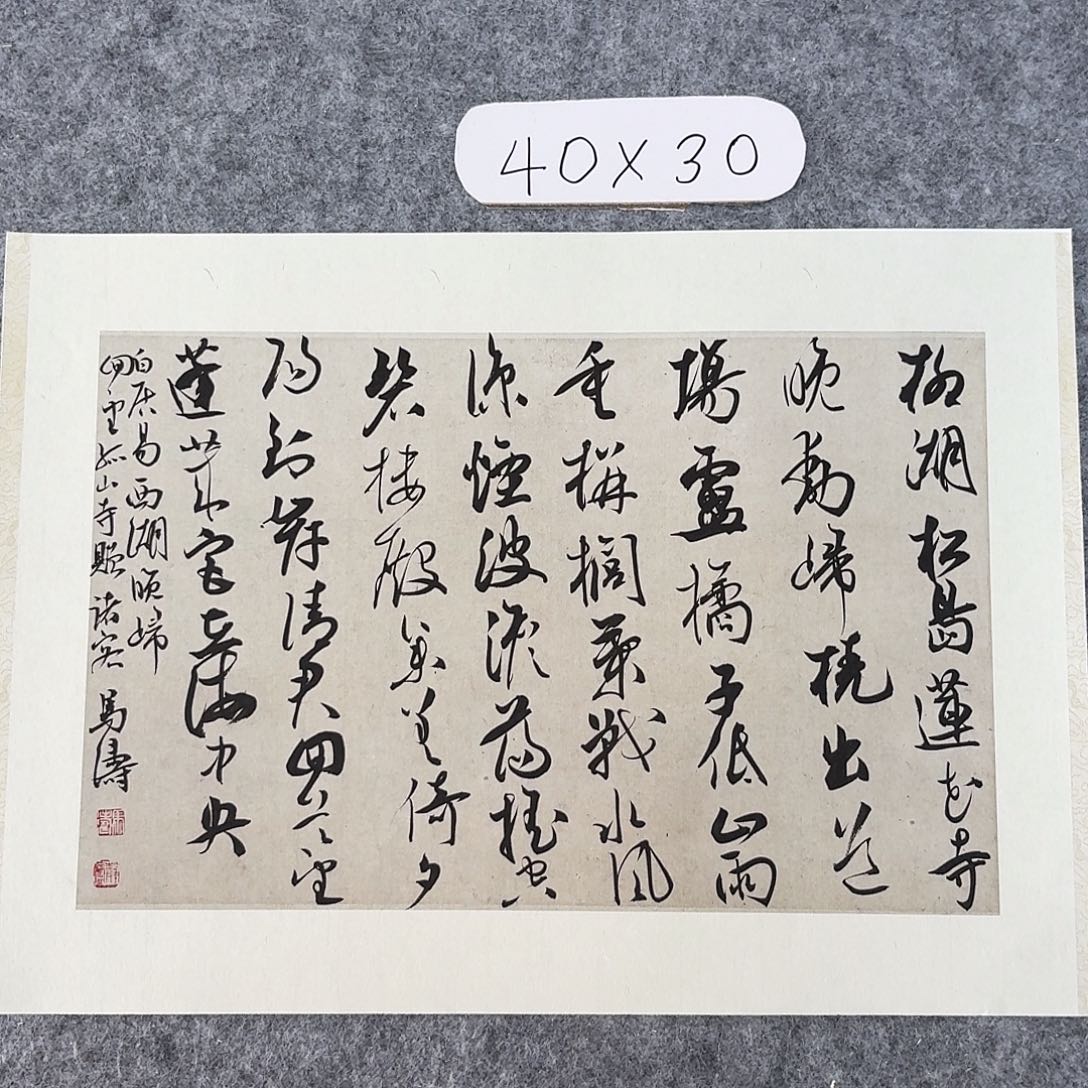 40X30
柳湖松島蓮花寺
晚動歸橈出道
場盧橘子低山雨
重栟櫚葉戰水風
涼煙波澹蕩搖空
碧樓殿參差倚夕
陽到岸請君回首望
蓬萊宮在海中央
白居易西湖晚歸
回望孤山寺贈諸客 馬濤